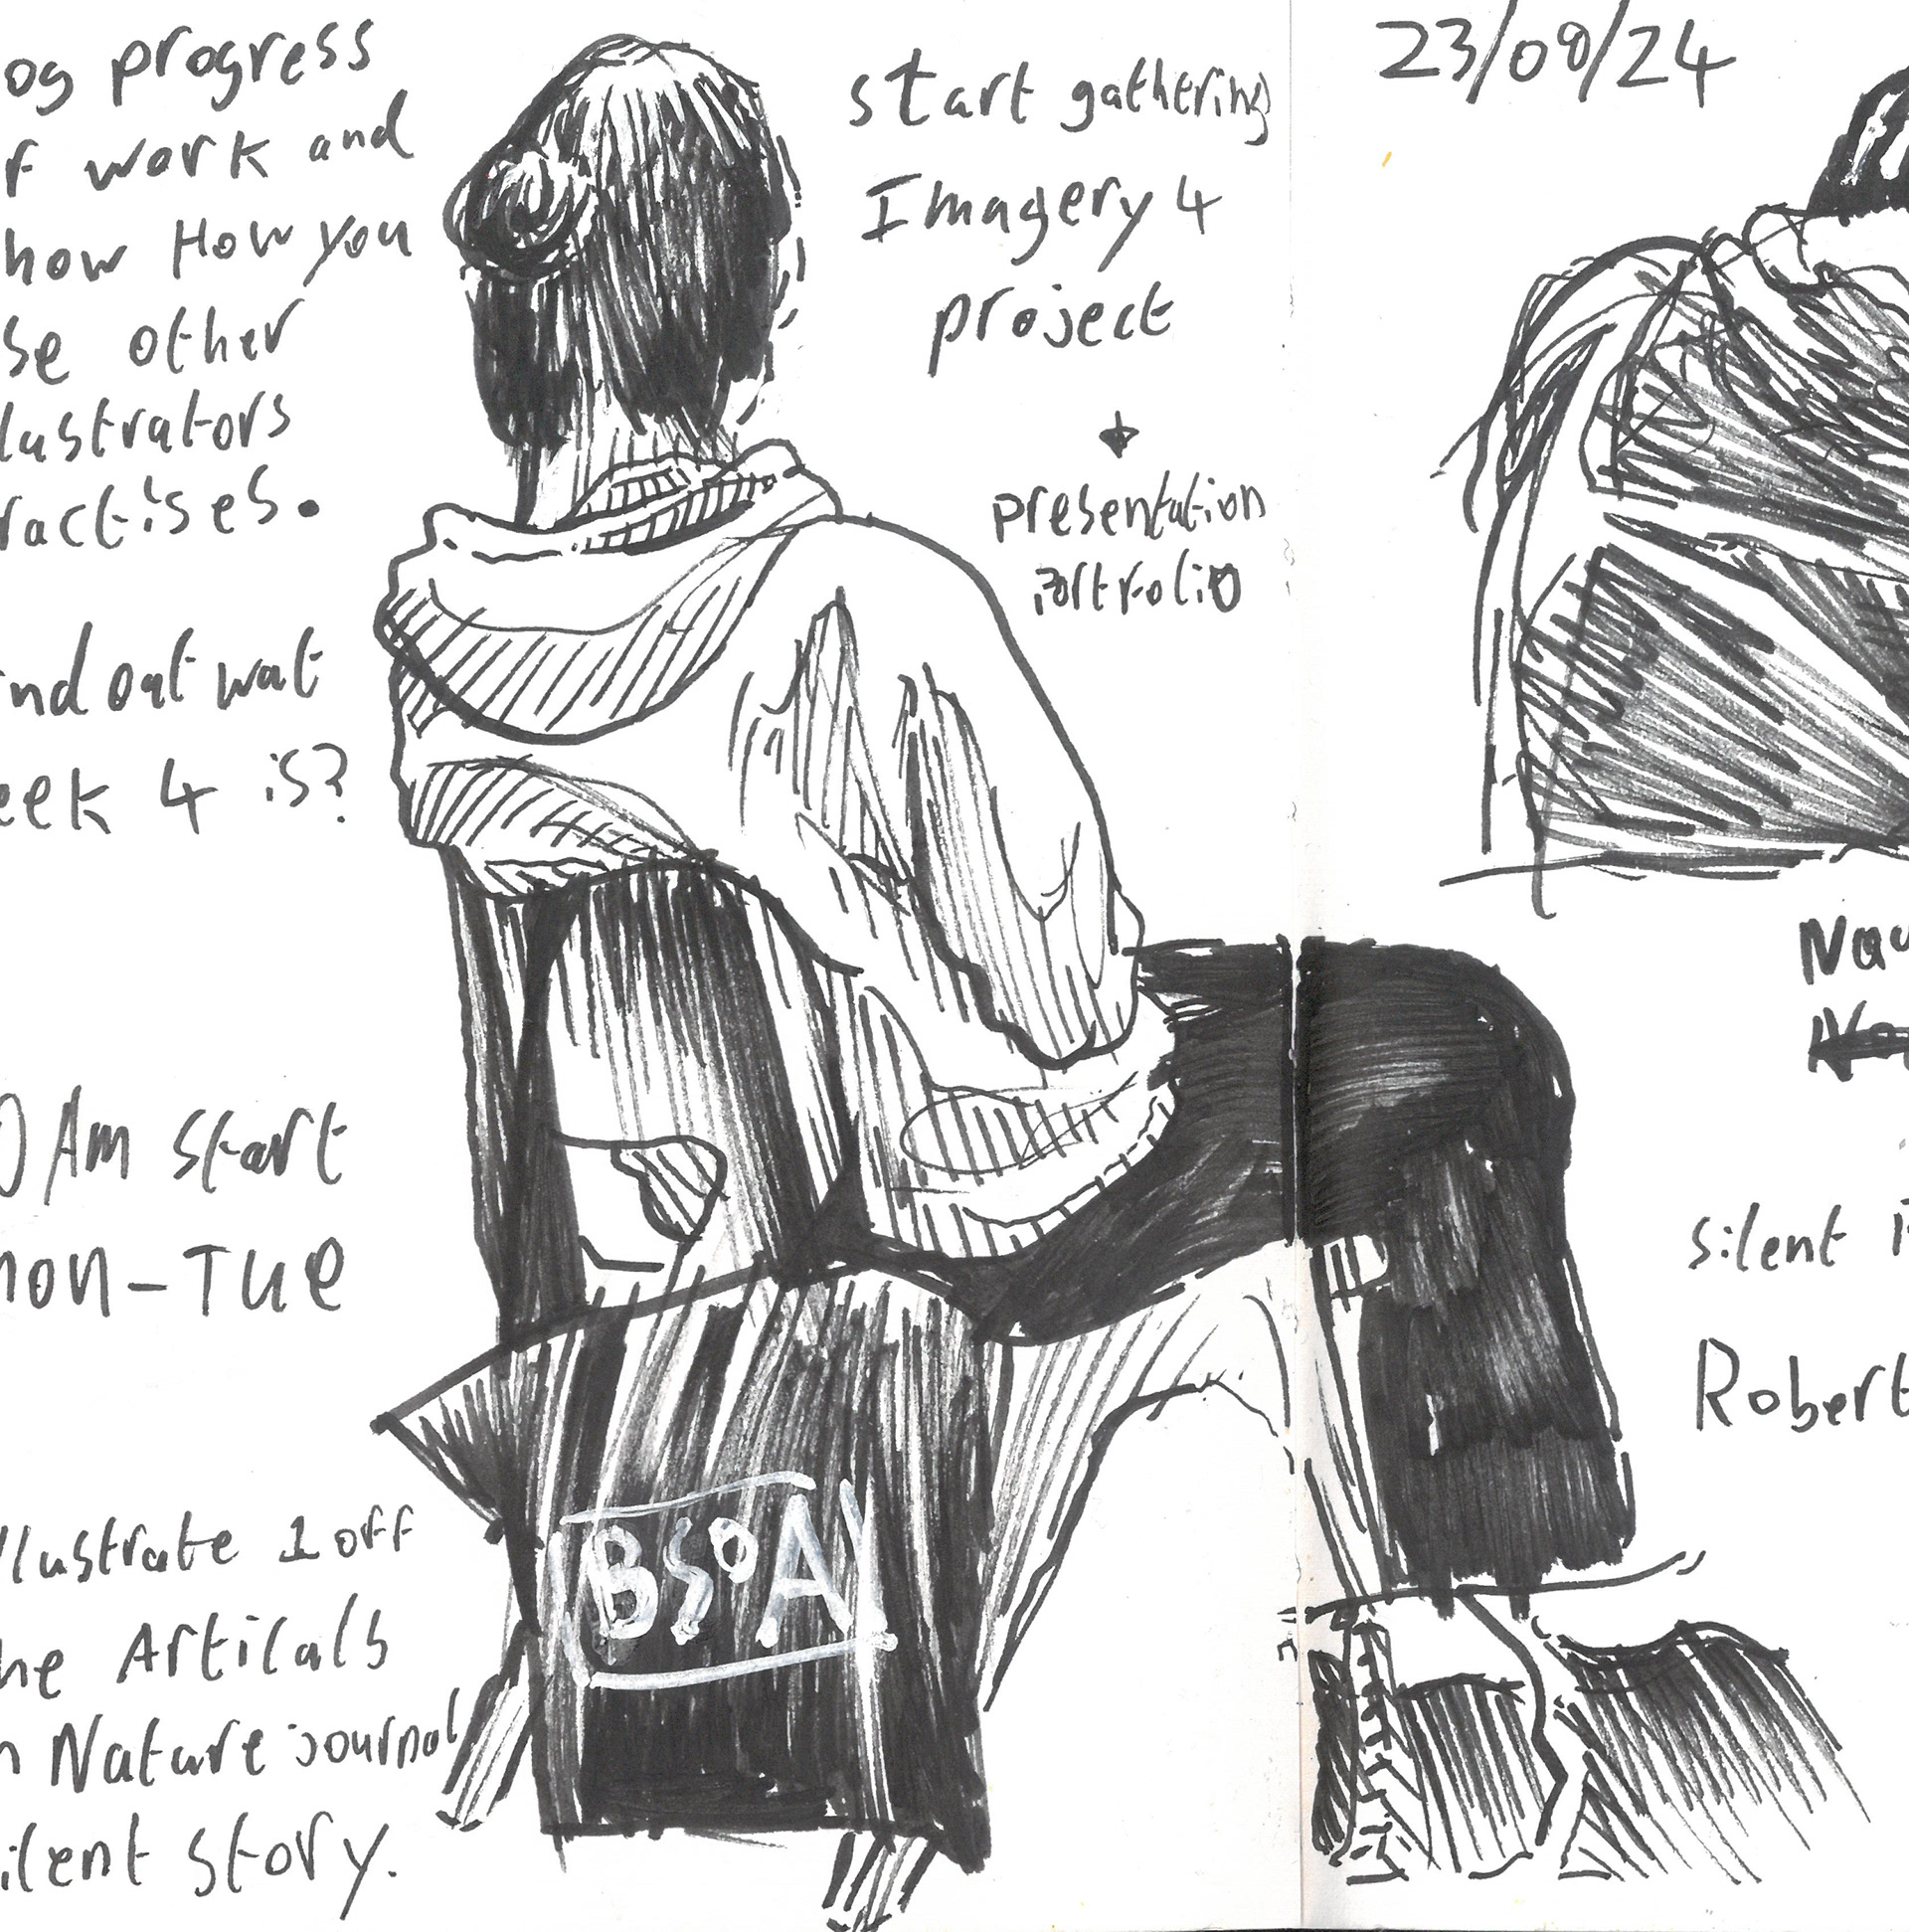 og progress
f work and
how How you
se other
lustrators
ractises.
nd out wat
eek 4 is?
0 Am start
mon-Tue
llustrate 1 off
he Articals
n Nature journal
ilent story.
start gathering
Imagery 4
project
presentation
Portfolio
BSOA
23/09/24
Nau
silent
Robert